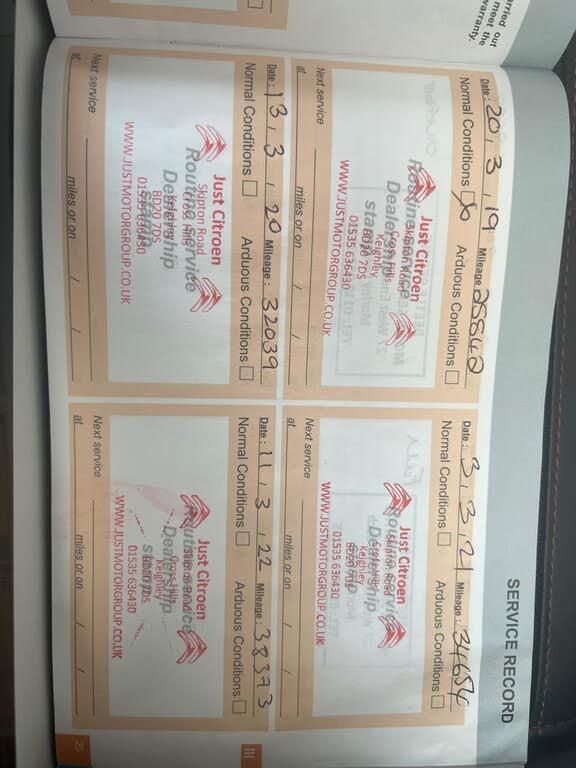 arried out
meet the
warranty.
SERVICE RECORD
Date: 20 , 3 , 19 Mileage:
Normal Conditions Arduous Conditions
Just Citroen
Routine Service
Skipton Road
Cross Hills
Dealership
Keighley
stamp
BD20 7DS
01535 636430
WWW.JUSTMOTORGROUP.CO.UK
Next service
at miles or on / /
Date: 3 , 3 , 21 Mileage: 34654
Normal Conditions Arduous Conditions
Just Citroen
Routine Service
Skipton Road
Cross Hills
Dealership
Keighley
stamp
BD20 7DS
01535 636430
WWW.JUSTMOTORGROUP.CO.UK
Next service
at miles or on / /
Date: 13 , 3 , 20 Mileage: 32039
Normal Conditions Arduous Conditions
Just Citroen
Routine Service
Skipton Road
Cross Hills
Dealership
Keighley
stamp
BD20 7DS
01535 636430
WWW.JUSTMOTORGROUP.CO.UK
Next service
at miles or on / /
Date: 11 , 3 , 22 Mileage: 38373
Normal Conditions Arduous Conditions
Just Citroen
Routine Service
Skipton Road
Cross Hills
Dealership
Keighley
stamp
BD20 7DS
01535 636430
WWW.JUSTMOTORGROUP.CO.UK
Next service
at miles or on / /
III
25